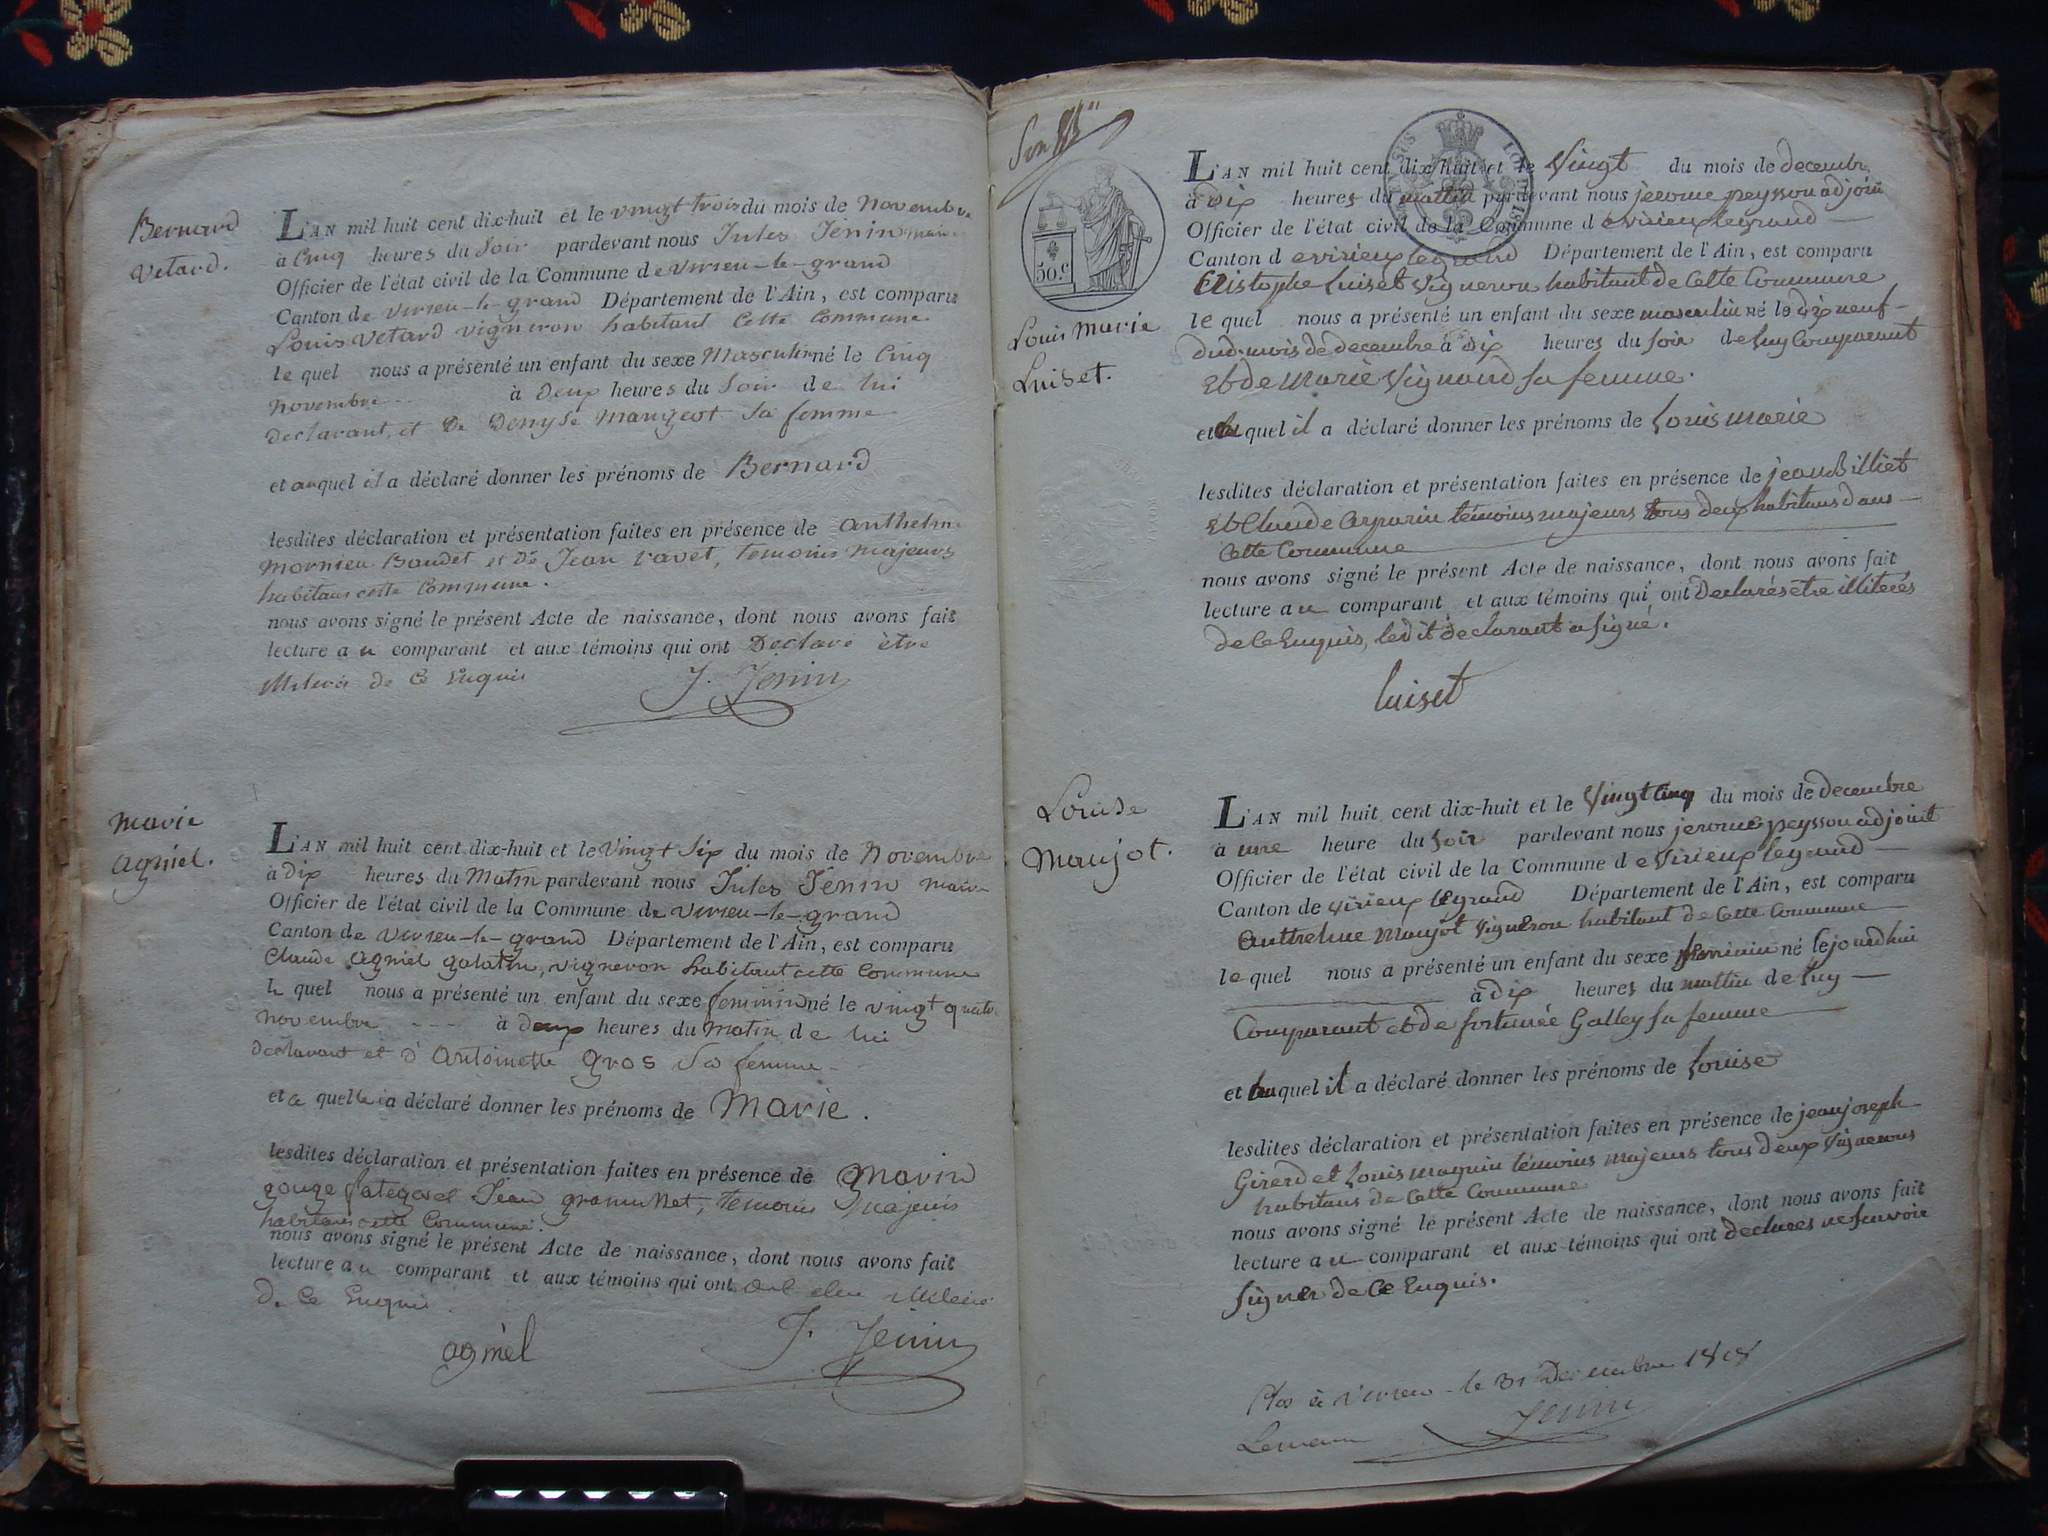 Bernard
Vetard.
L'AN mil huit cent dix-huit et le vingt trois du mois de Novembre
à Cinq heures du Soir pardevant nous Jules Jenin maire
Officier de l'état civil de la Commune de Virieu-le-grand
Canton de Virieu-le-grand Département de l'Ain, est comparu
Louis Vetard vigneron habitant cette Commune
le quel nous a présenté un enfant du sexe Masculin né le Cinq
Novembre à Deux heures du Soir de lui
declarant, et de Denyse Maugeot sa femme
et auquel il a déclaré donner les prénoms de Bernard
lesdites déclaration et présentation faites en présence de anthelme
Mornieu Baudet et de Jean ravet, temoins Majeurs
habitans cette Commune.
nous avons signé le présent Acte de naissance, dont nous avons fait
lecture au comparant et aux témoins qui ont Déclaré être
illiterés de Ce Enquis
J. Jenin
Marie
agniel.
L'AN mil huit cent dix-huit et le Vingt Six du mois de Novembre
à Dix heures du Matin pardevant nous Jules Jenin maire
Officier de l'état civil de la Commune de Virieu-le-grand
Canton de Virieu-le-grand Département de l'Ain, est comparu
Claude agniel galatin, vigneron habitant cette Commune
le quel nous a présenté un enfant du sexe feminin né le vingt quatre
novembre à Deux heures du Matin de lui
declarant et d'Antoinette Gros sa femme
et a quelle a déclaré donner les prénoms de Marie.
lesdites déclaration et présentation faites en présence de Marin
gouge et Jean grammet, temoins Majeurs
habitans cette Commune.
nous avons signé le présent Acte de naissance, dont nous avons fait
lecture au comparant et aux témoins qui ont illiteré
De Ce Enquis
agniel
J. Jenin
50 C
Louis Marie
Luiset.
L'AN mil huit cent dix-huit et le Vingt du mois de decembre
à Dix heures du mattin pardevant nous jerome peysson adjoint
Officier de l'état civil de la Commune de virieux legrand
Canton de virieux legrand Département de l'Ain, est comparu
Cristophe Luiset Vigneron habitant de Cette Commune
le quel nous a présenté un enfant du sexe masculin né le dix neuf
dud. mois de decembre à Dix heures du soir de luy Comparant
Et de Marie Vignand sa femme.
et au quel il a déclaré donner les prénoms de Louis marie
lesdites déclaration et présentation faites en présence de jean Billiet
Et Claude témoins majeurs tous deux habitans dans
Cette Commune
nous avons signé le présent Acte de naissance, dont nous avons fait
lecture au comparant et aux témoins qui ont Declarés etre illiterés
de Ce Enquis, ledit declarant a signé.
luiset
Louise
Maujot.
L'AN mil huit cent dix-huit et le Vingt cinq du mois de decembre
à une heure du soir pardevant nous jerome peysson adjoint
Officier de l'état civil de la Commune de Virieux legrand
Canton de virieux legrand Département de l'Ain, est comparu
Anthelme Maujot Vigneron habitant de Cette Commune
le quel nous a présenté un enfant du sexe feminin né lejourdhui
à dix heures du mattin de luy
Comparant et de fortunée Galley sa femme
et auquel il a déclaré donner les prénoms de Louise
lesdites déclaration et présentation faites en présence de jean joseph
Girerd et Louis maguin témoins majeurs tous deux Vignerons
habitans de Cette Commune
nous avons signé le présent Acte de naissance, dont nous avons fait
lecture au comparant et aux témoins qui ont declarés ne savoir
signer de Ce Enquis.
Clos à Virieu le 31 Decembre 1818
Lemaire Jenin